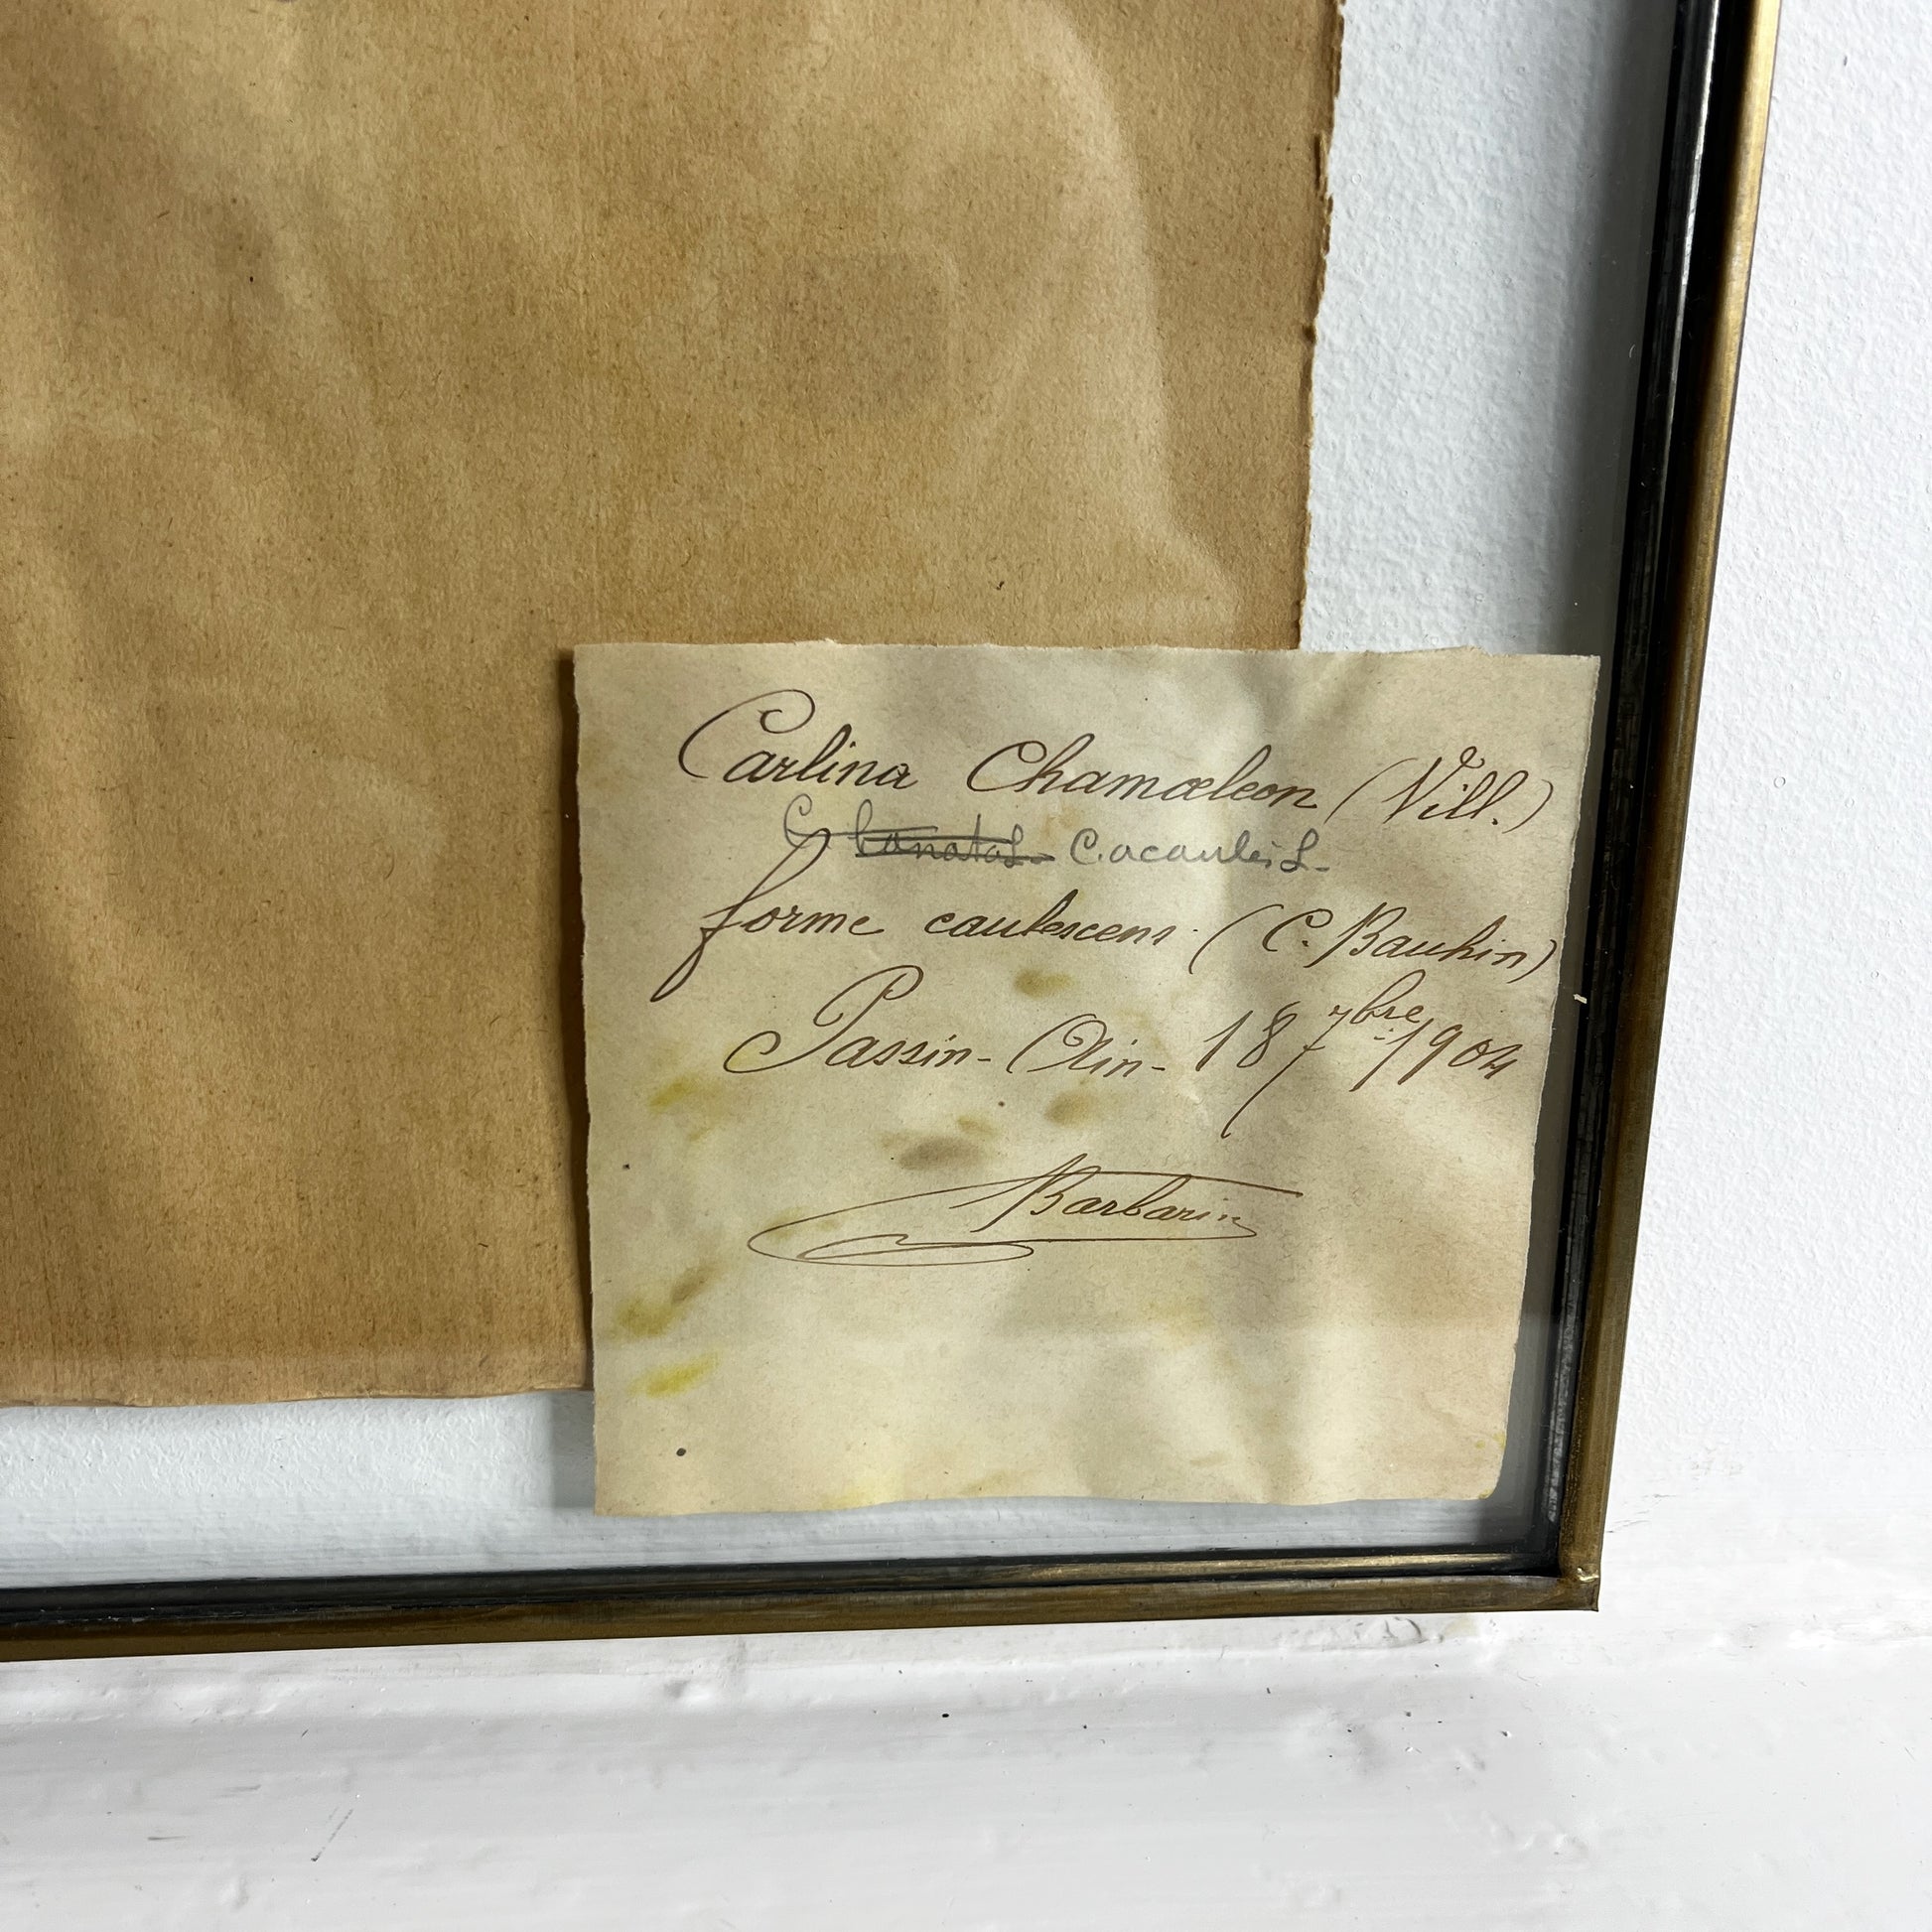 Carlina Chamœleon (Vill.)
C. lanata L. C. acaulis L.
forme caulescens (C. Bauhin)
Passin - Ain - 18 7bre 1904
Barbarin